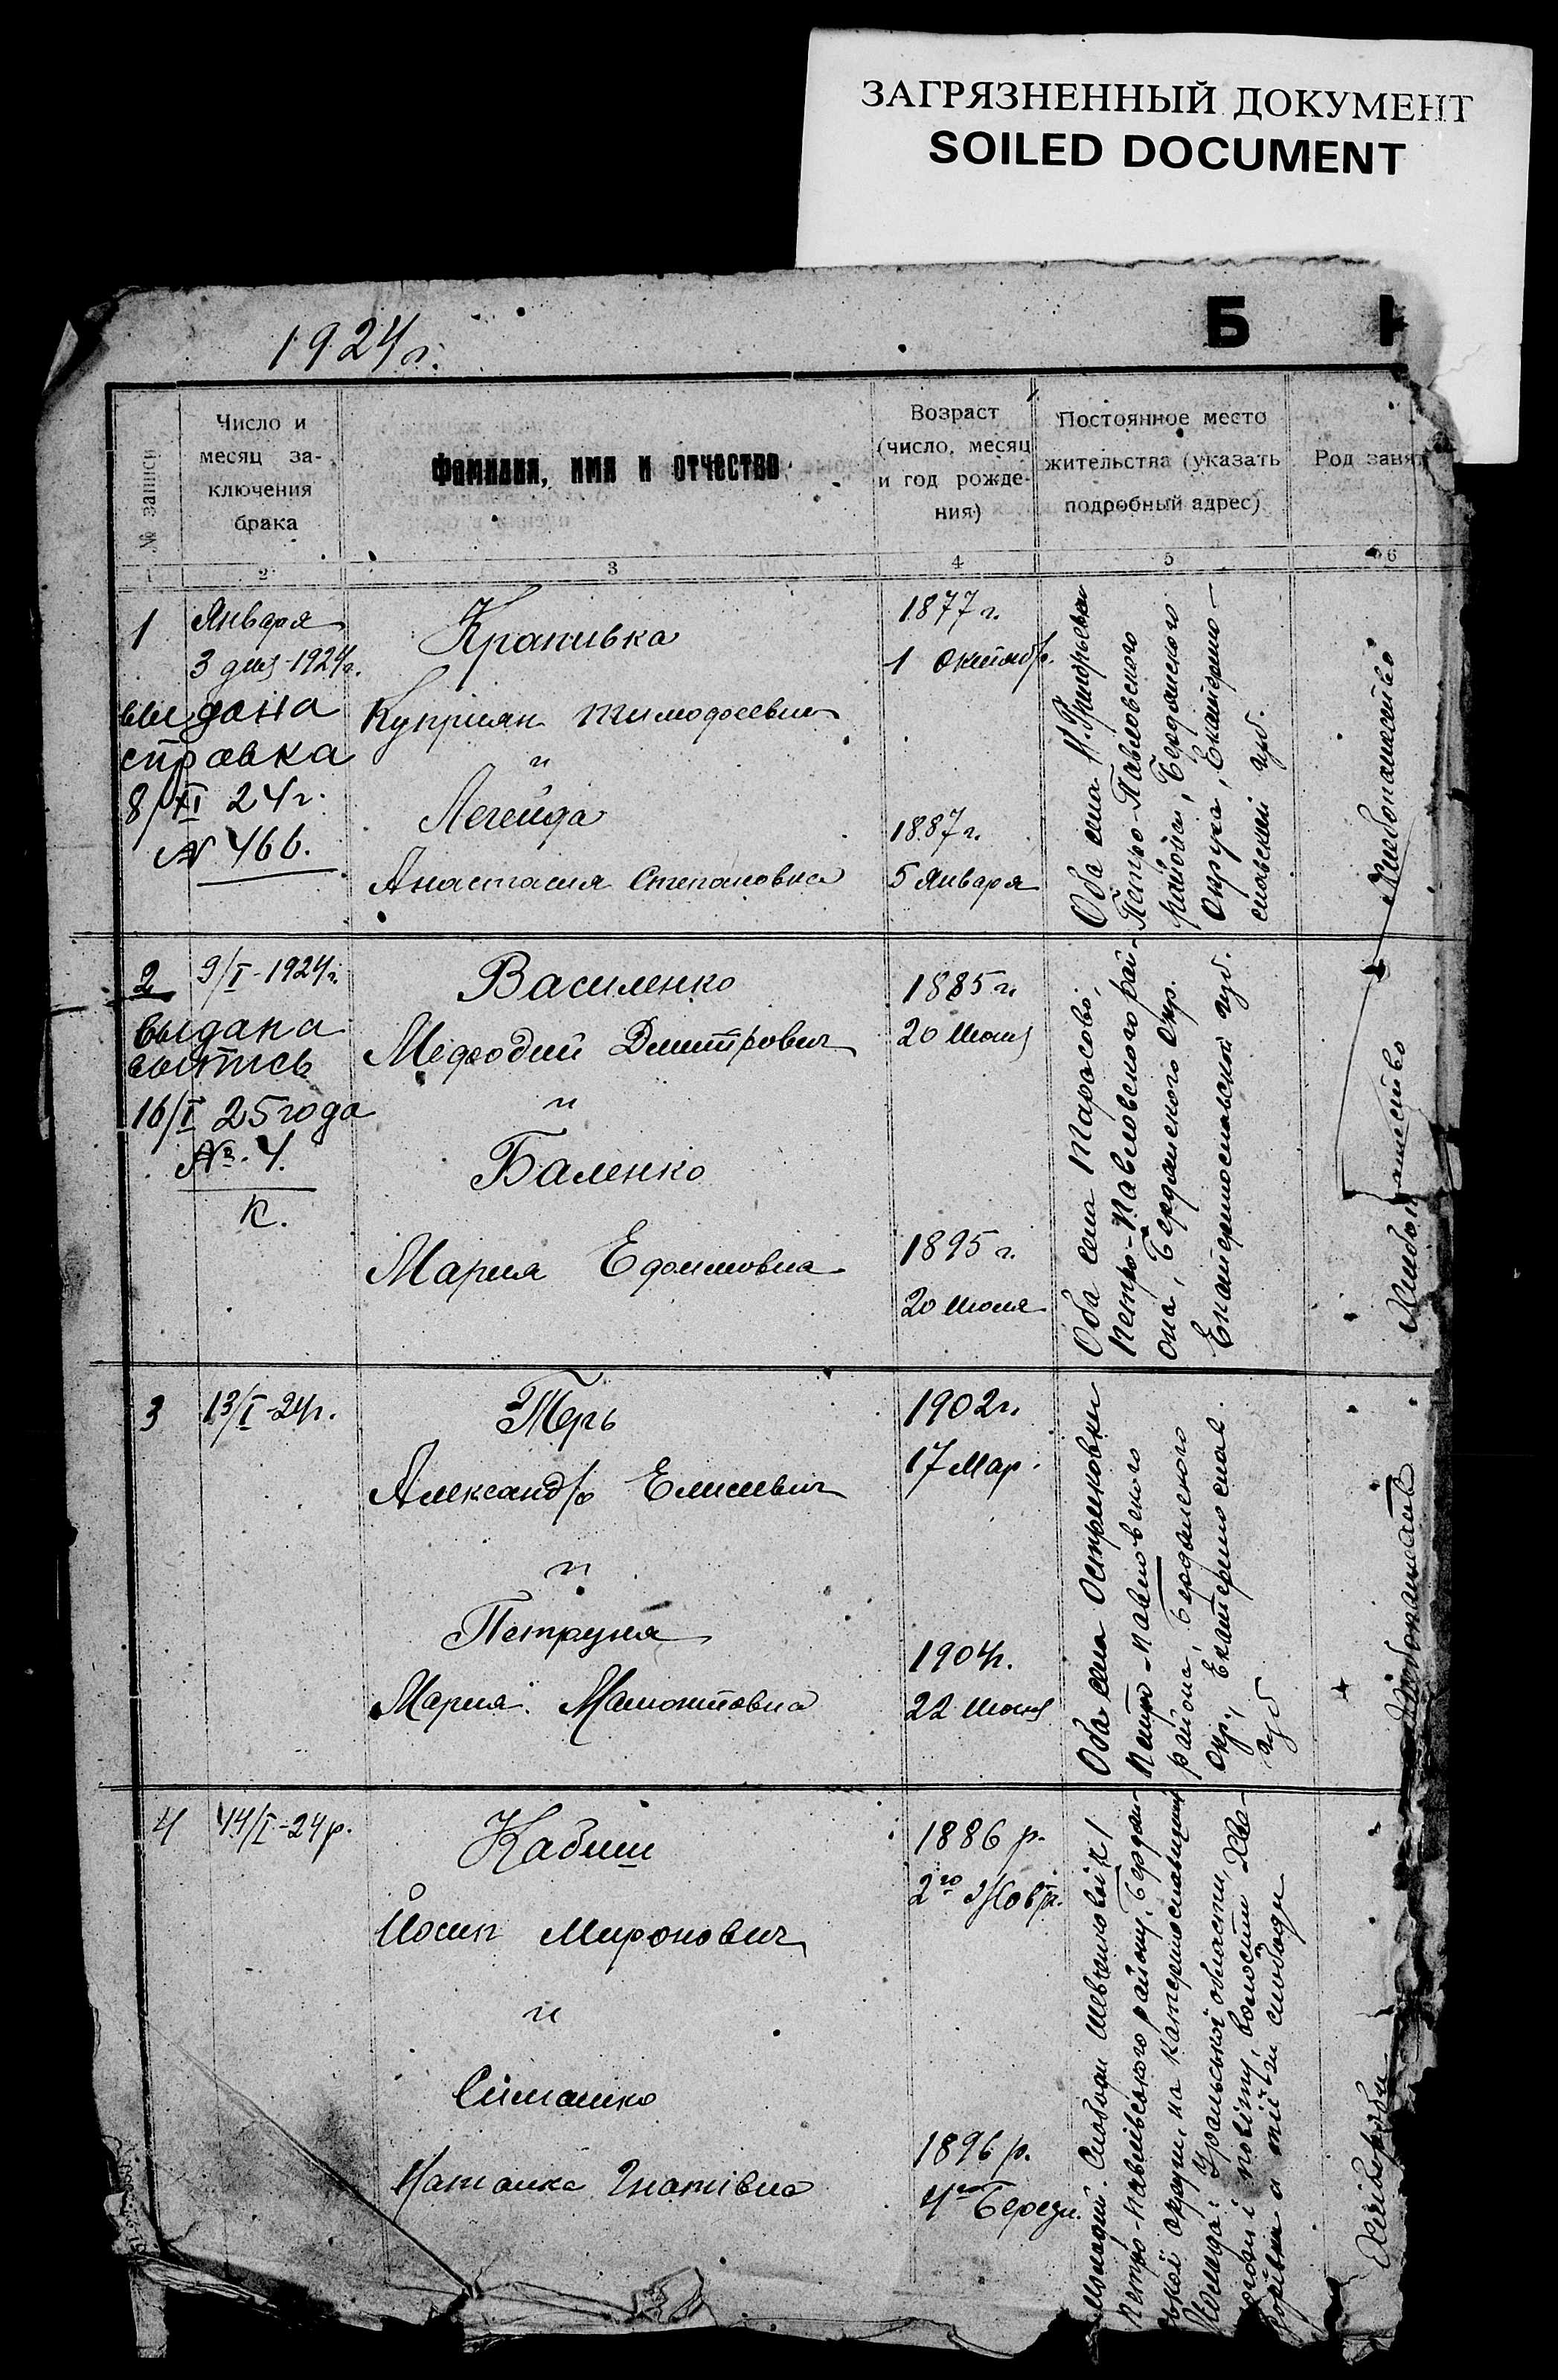 ЗАГРЯЗНЕННЫЙ ДОКУМЕНТ
SOILED DOCUMENT
1924 г.
Б
№ записи
Число и
месяц за-
ключения
брака
Фамилия, имя и отчество
Возраст
(число, месяц
и год рожде-
ния)
Постоянное место
жительства (указать
подробный адрес)
Род заня
1
2
3
4
5
6
1
Января
3 дня-1924г.
выдана
справка
8/XI 24г.
№ 466.
Крапивка
Куприян Тимофеевич
и
Легейда
Анастасия Степановна
1877 г.
1 Октябр.
1887 г.
5 Января
Оба села Н. Григорьевки
Петро-Павловского
района, Бердянского
Округа, Екатерино-
славский губ.
Хлебопашество
2
9/I-1924г.
выдана
выпись
16/I 25 года
№. 4.
К.
Василенко
Мефодий Дмитрович
и
Баленко
Мария Ефимовна
1885 г.
20 Июня
1895 г.
20 Июля
Оба села Тарасово,
Петро-Павловского рай-
она, Бердянского Окр.
Екатеринославской губ.
3
13/I-24г.
Терь
Александр Елисевич
и
Петруня
Мария Мамонтовна
1902г.
17 Мар.
1904г.
22 Июня
Оба села Остриковки
Петро-Павловского
района, Бердянского
Окр., Екатеринослав.
губ
Хлебопашест
4
14/I-24р.
Кабиш
Йосип Миронович
и
Сімашко
Наталка Гнатівна
1886 р.
2го Жовт.
1896 р.
4го Березн.
Молодий: Слободи
Петро-Павлівського району, Бердян-
ської округи, на Катеринославщині
Уральської області,
повіту, волости
слободи
Хлібороби